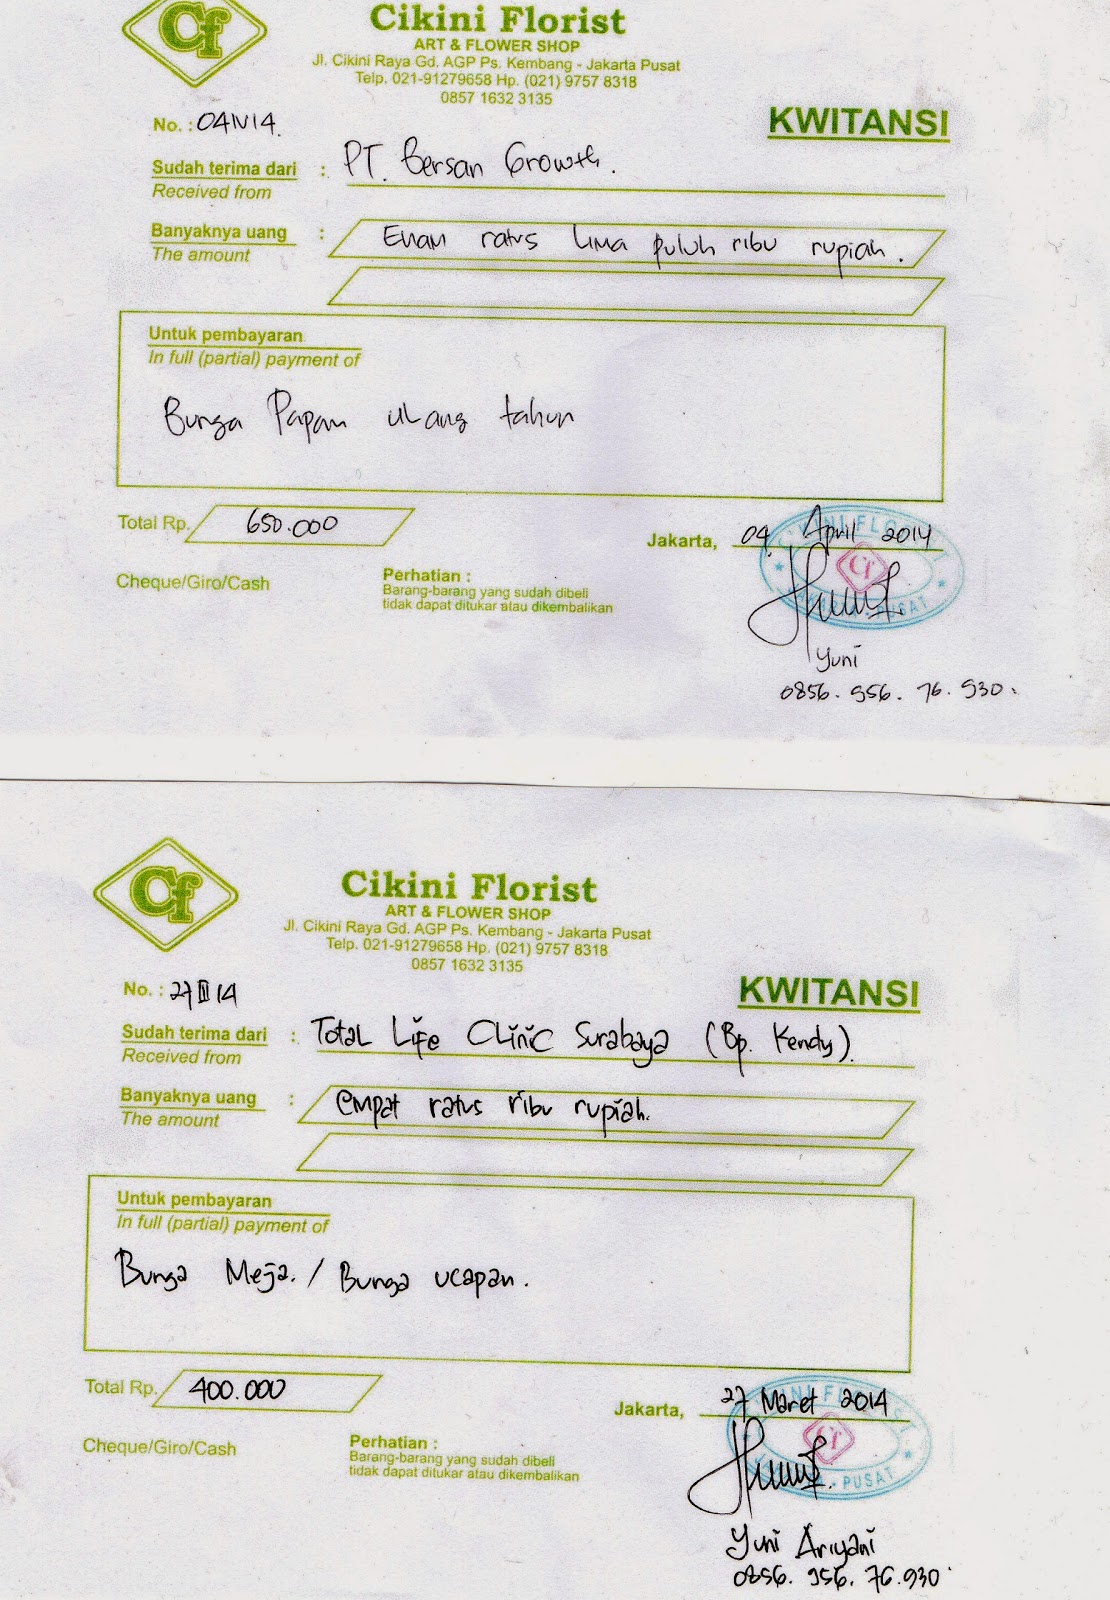 Cf
Cikini Florist
ART & FLOWER SHOP
Jl. Cikini Raya Gd. AGP Ps. Kembang - Jakarta Pusat
Telp. 021-91279658 Hp. (021) 9757 8318
0857 1632 3135
KWITANSI
No. : 04IV14.
Sudah terima dari : PT. Bersan Growth.
Received from
Banyaknya uang : Enam ratus lima puluh ribu rupiah.
The amount
Untuk pembayaran
In full (partial) payment of
Bunga Papan ulang tahun
Total Rp. 650.000
Jakarta, 04 April 2014
Cheque/Giro/Cash
Perhatian :
Barang-barang yang sudah dibeli
tidak dapat ditukar atau dikembalikan
Cf
Yuni
0856. 956. 76. 930.
Cf
Cikini Florist
ART & FLOWER SHOP
Jl. Cikini Raya Gd. AGP Ps. Kembang - Jakarta Pusat
Telp. 021-91279658 Hp. (021) 9757 8318
0857 1632 3135
KWITANSI
No. : 27III14
Sudah terima dari : Total Life Clinic Surabaya (Bp. Kendy).
Received from
Banyaknya uang : empat ratus ribu rupiah.
The amount
Untuk pembayaran
In full (partial) payment of
Bunga Meja. / Bunga ucapan.
Total Rp. 400.000
Jakarta, 27 Maret 2014
Cheque/Giro/Cash
Perhatian :
Barang-barang yang sudah dibeli
tidak dapat ditukar atau dikembalikan
Cf
Yuni Ariyani
0856. 956. 76. 930